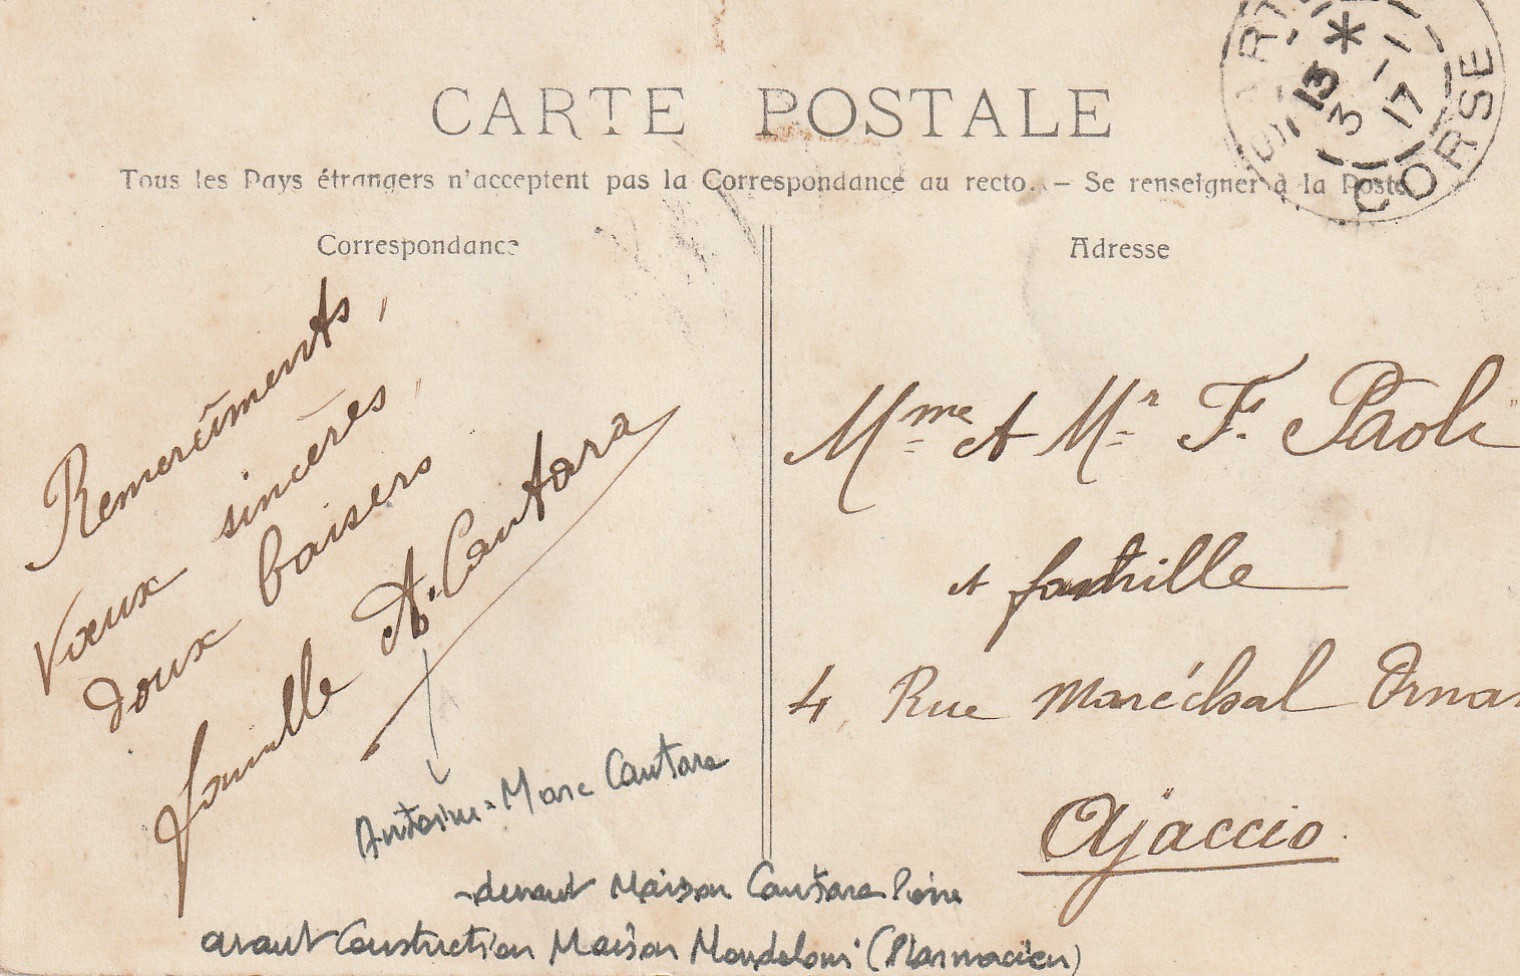 CARTE POSTALE
Tous les Pays étrangers n'acceptent pas la Correspondance au recto. – Se renseigner à la Poste
Correspondance
Remercîments,
Vœux sincères,
doux baisers
famille A. Cantara
Antoine-Marc Cantara
-devant Maison Cantara Pierre
avant Construction Maison Mondoloni (Pharmacien)
SART
CORSE
13 *
3 - 1
17
Adresse
Mme et Mr F. Paoli
et famille
4, Rue Maréchal Ornan
Ajaccio